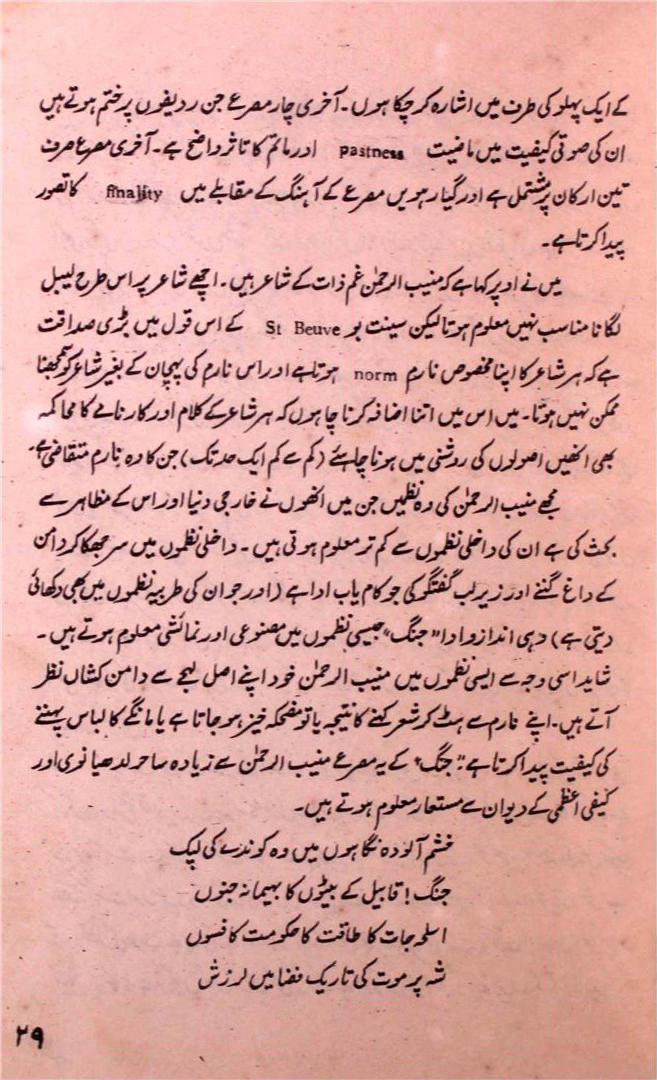 کے ایک پہلو کی طرف میں اشارہ کر چکا ہوں۔ آخری چار مصرعے جن ردیفوں پر ختم ہوتے ہیں
ان کی صوتی کیفیت میں ماضیت pastness اور ماتم کا تاثر واضح ہے۔ آخری مصرع صرف
تین ارکان پر مشتمل ہے اور گیارہویں مصرعے کے آہنگ کے مقابلے میں finality کا تصور
پیدا کرتا ہے۔
میں نے اوپر کہا ہے کہ منیب الرحمٰن غم ذات کے شاعر ہیں۔ اچھے شاعر پر اس طرح لیبل
لگانا مناسب نہیں معلوم ہوتا لیکن سینت بو St Beuve کے اس قول میں بڑی صداقت
ہے کہ ہر شاعر کا اپنا مخصوص نارم norm ہوتا ہے اور اس نارم کی پہچان کے بغیر شاعر کو سمجھنا
ممکن نہیں ہوتا۔ میں اس میں اتنا اضافہ کرنا چاہوں کہ ہر شاعر کے کلام اور کارنامے کا محاکمہ
بھی انھیں اصولوں کی روشنی میں ہونا چاہئے (کم سے کم ایک حد تک) جن کا وہ نارم متقاضی ہے۔
مجھے منیب الرحمٰن کی وہ نظمیں جن میں انھوں نے خارجی دنیا اور اس کے مظاہر سے
بحث کی ہے ان کی داخلی نظموں سے کم تر معلوم ہوتی ہیں۔ داخلی نظموں میں سر جھکا کر دامن
کے داغ گننے اور زیر لب گفتگو کی جو کام یاب ادا ہے (اور جو ان کی طربیہ نظموں میں بھی دکھائی
دیتی ہے) وہی انداز و ادا "جنگ" جیسی نظموں میں مصنوعی اور نمائشی معلوم ہوتے ہیں۔
شاید اسی وجہ سے ایسی نظموں میں منیب الرحمٰن خود اپنے اصل لہجے سے دامن کشاں نظر
آتے ہیں۔ اپنے نارم سے ہٹ کر شعر کہنے کا نتیجہ یا تو مضحکہ خیز ہو جاتا ہے یا مانگے کا لباس پہننے
کی کیفیت پیدا کرتا ہے۔ "جنگ" کے یہ مصرعے منیب الرحمٰن سے زیادہ ساحر لدھیانوی اور
کیفی اعظمی کے دیوان سے مستعار معلوم ہوتے ہیں۔
خشم آلودہ نگاہوں میں وہ کوندے کی لپک
جنگ! قابیل کے بیٹوں کا بہیمانہ جنوں
اسلحہ جات کا طاقت کا حکومت کا فسوں
شہ پر موت کی تاریک فضا میں لرزش
۲۹